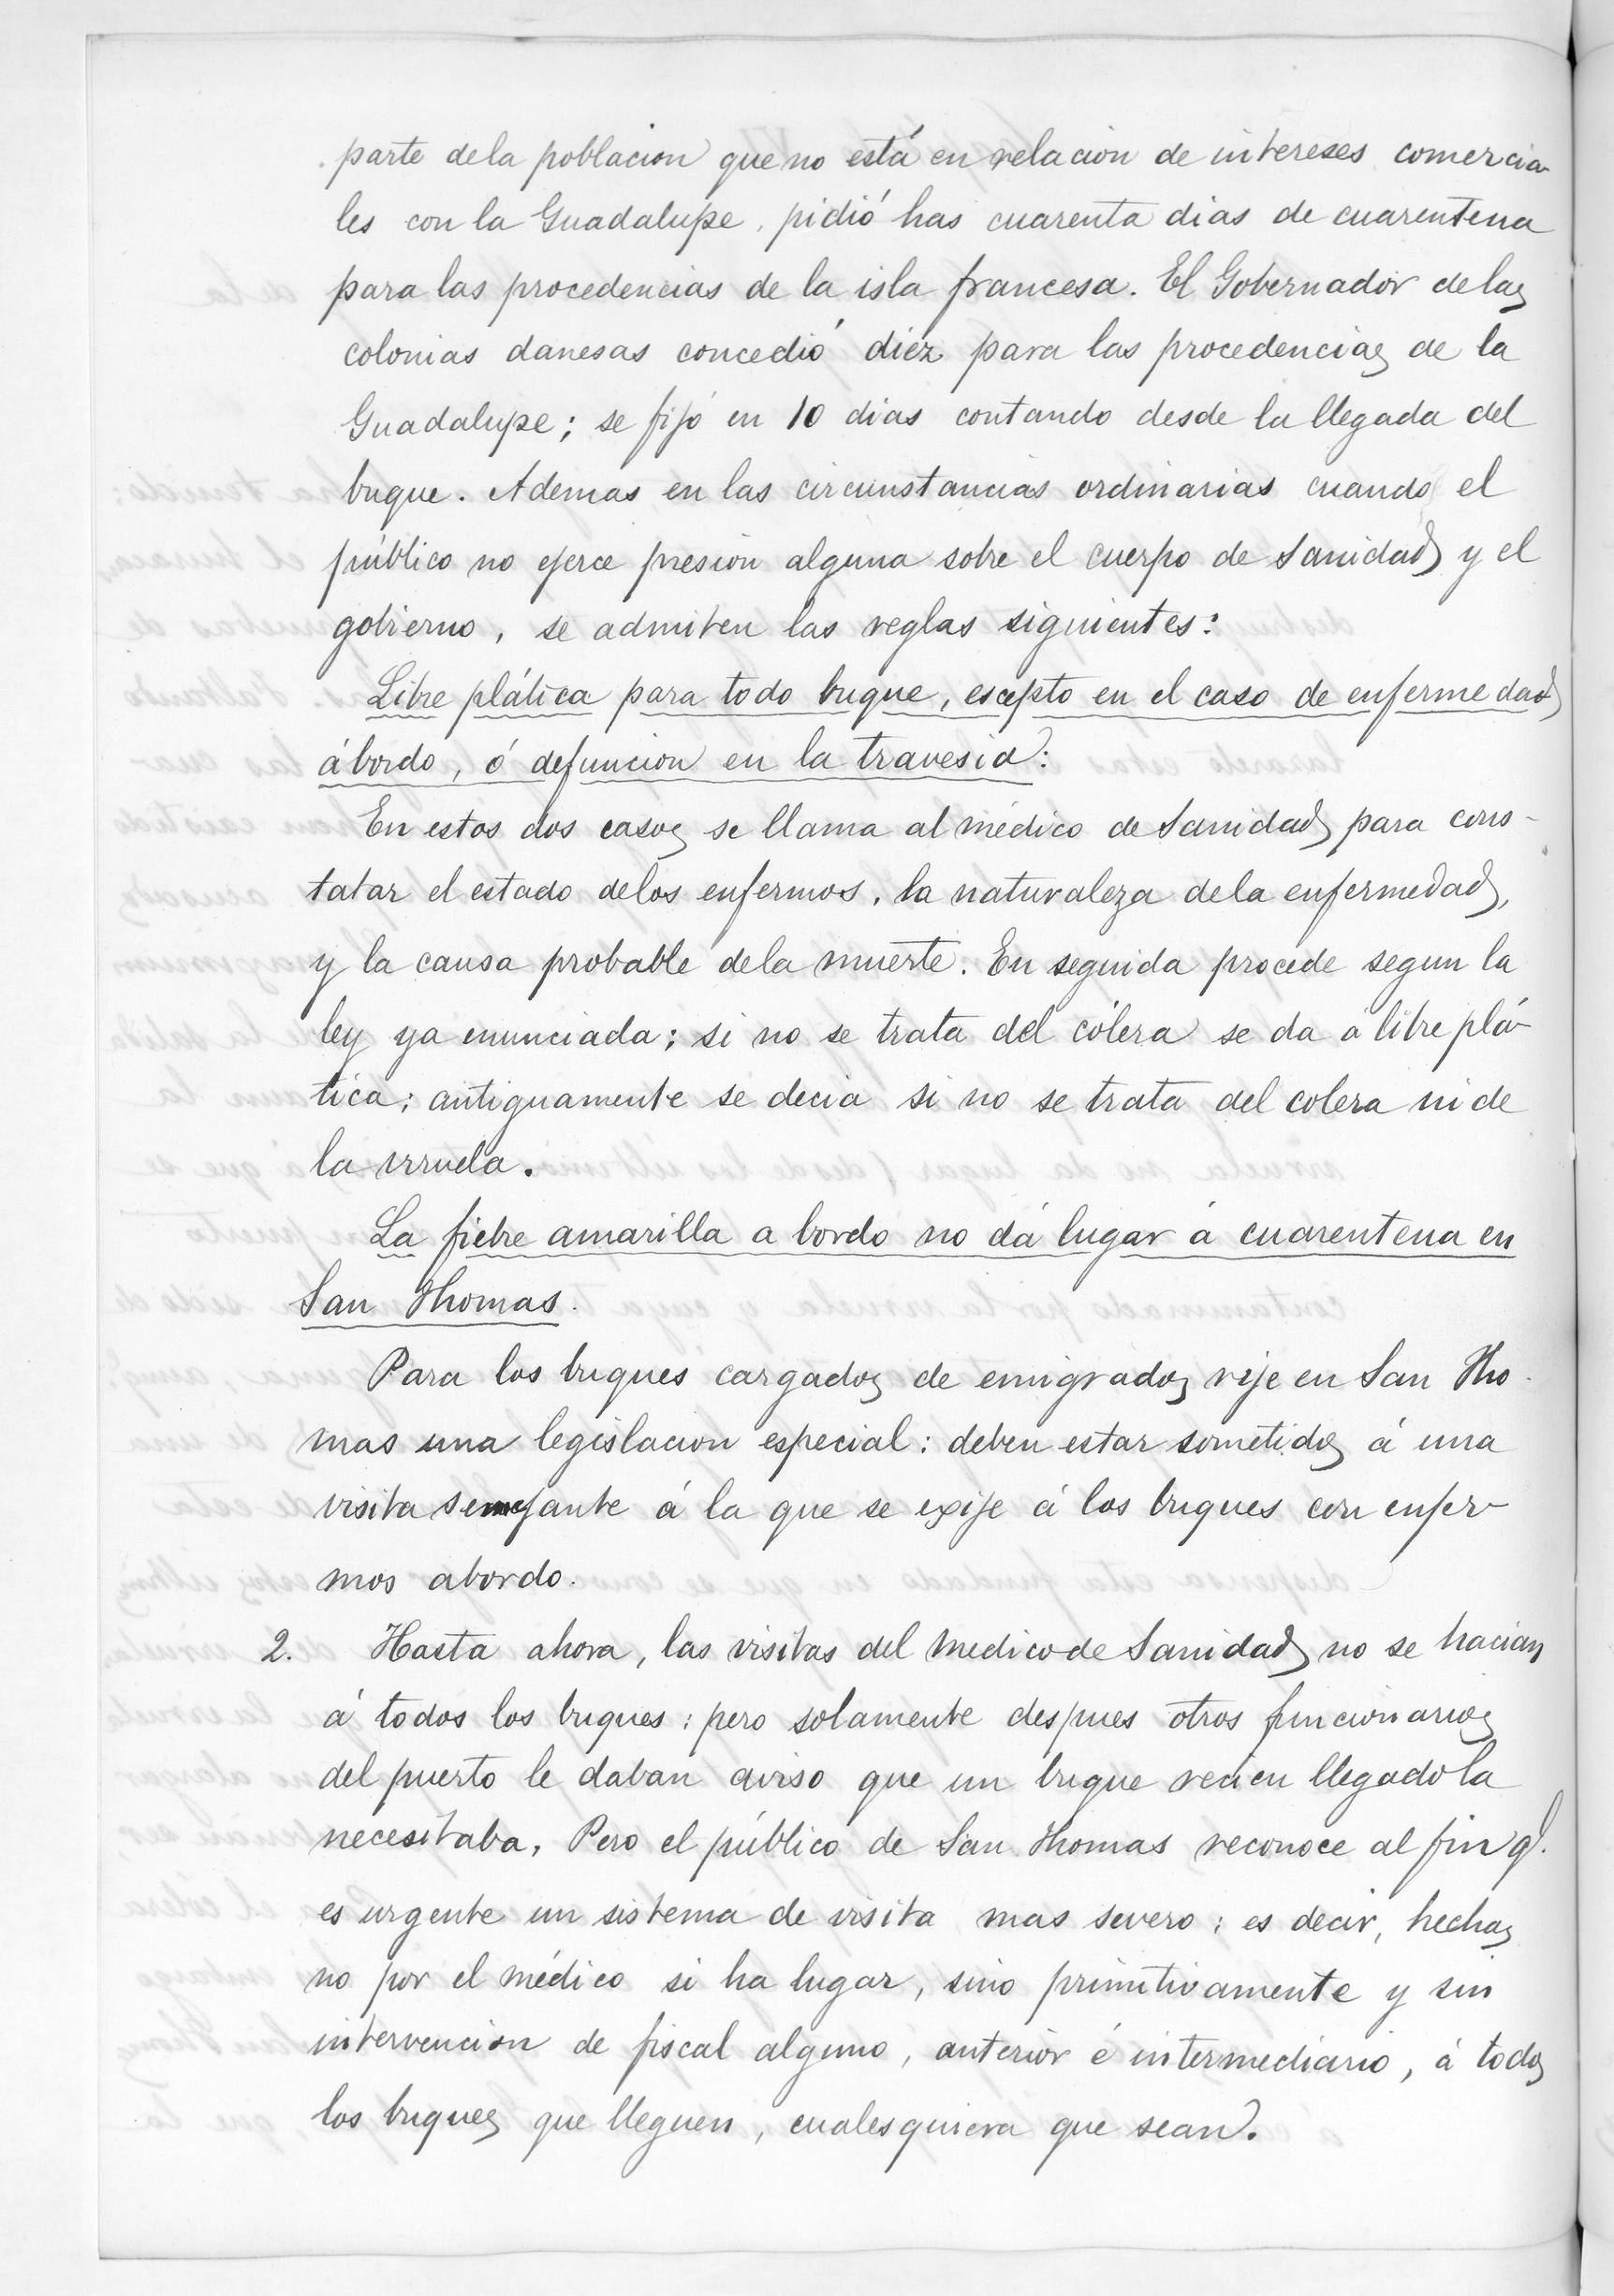 parte dela poblacion que no está en relacion de intereses comercia
les con la Guadalupe, pidió has cuarenta dias de cuarentena
para las procedencias de la isla francesa. El Gobernador delas
colonias danesas concedió diéz para las procedencias de la
Guadalupe; se fijó en 10 dias contando desde la llegada del
buque. Ademas en las circunstancias ordinarias cuando el
público no ejerce presion alguna sobre el cuerpo de Sanidad y el
gobierno, se admiten las reglas siguientes:
Libre plática para todo buque, escepto en el caso de enfermedad
ábordo, ó defuncion en la travesia:
En estos dos casos se llama al médico de Sanidad para cons-
tatar el estado delos enfermos, la naturaleza dela enfermedad,
y la causa probable dela muerte. En seguida procede segun la
ley ya enunciada; si no se trata del cólera se da á libre plá-
tica; antiguamente se decia si no se trata del colera ni de
la viruela.
La fiebre amarilla a bordo no dá lugar á cuarentena en
San Thomas.
Para los buques cargados de emigrados rije en San Tho-
mas una legislacion especial: deben estar sometidos á una
visita semejante á la que se exije á los buques con enfer-
mos abordo.
2. Hasta ahora, las visitas del medico de Sanidad no se hacian
á todos los buques; pero solamente despues otros funcionarios
del puerto le daban aviso que un buque recien llegado la
necesitaba. Pero el público de San Thomas reconoce al fin q.
es urgente un sistema de visita mas severo; es decir, hechas
no por el médico si ha lugar, sino primitivamente y sin
intervencion de fiscal alguno, anterior é intermediario, á todos
los buques que lleguen, cualesquiera que sean.